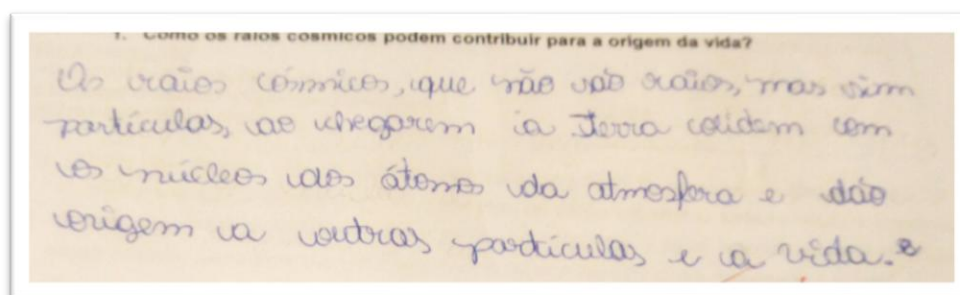 1. Como os raios cósmicos podem contribuir para a origem da vida?
Os raios cósmicos, que não são raios, mas sim
partículas, ao chegarem à Terra colidem com
os núcleos dos átomos da atmosfera e dão
origem a outras partículas e a vida.